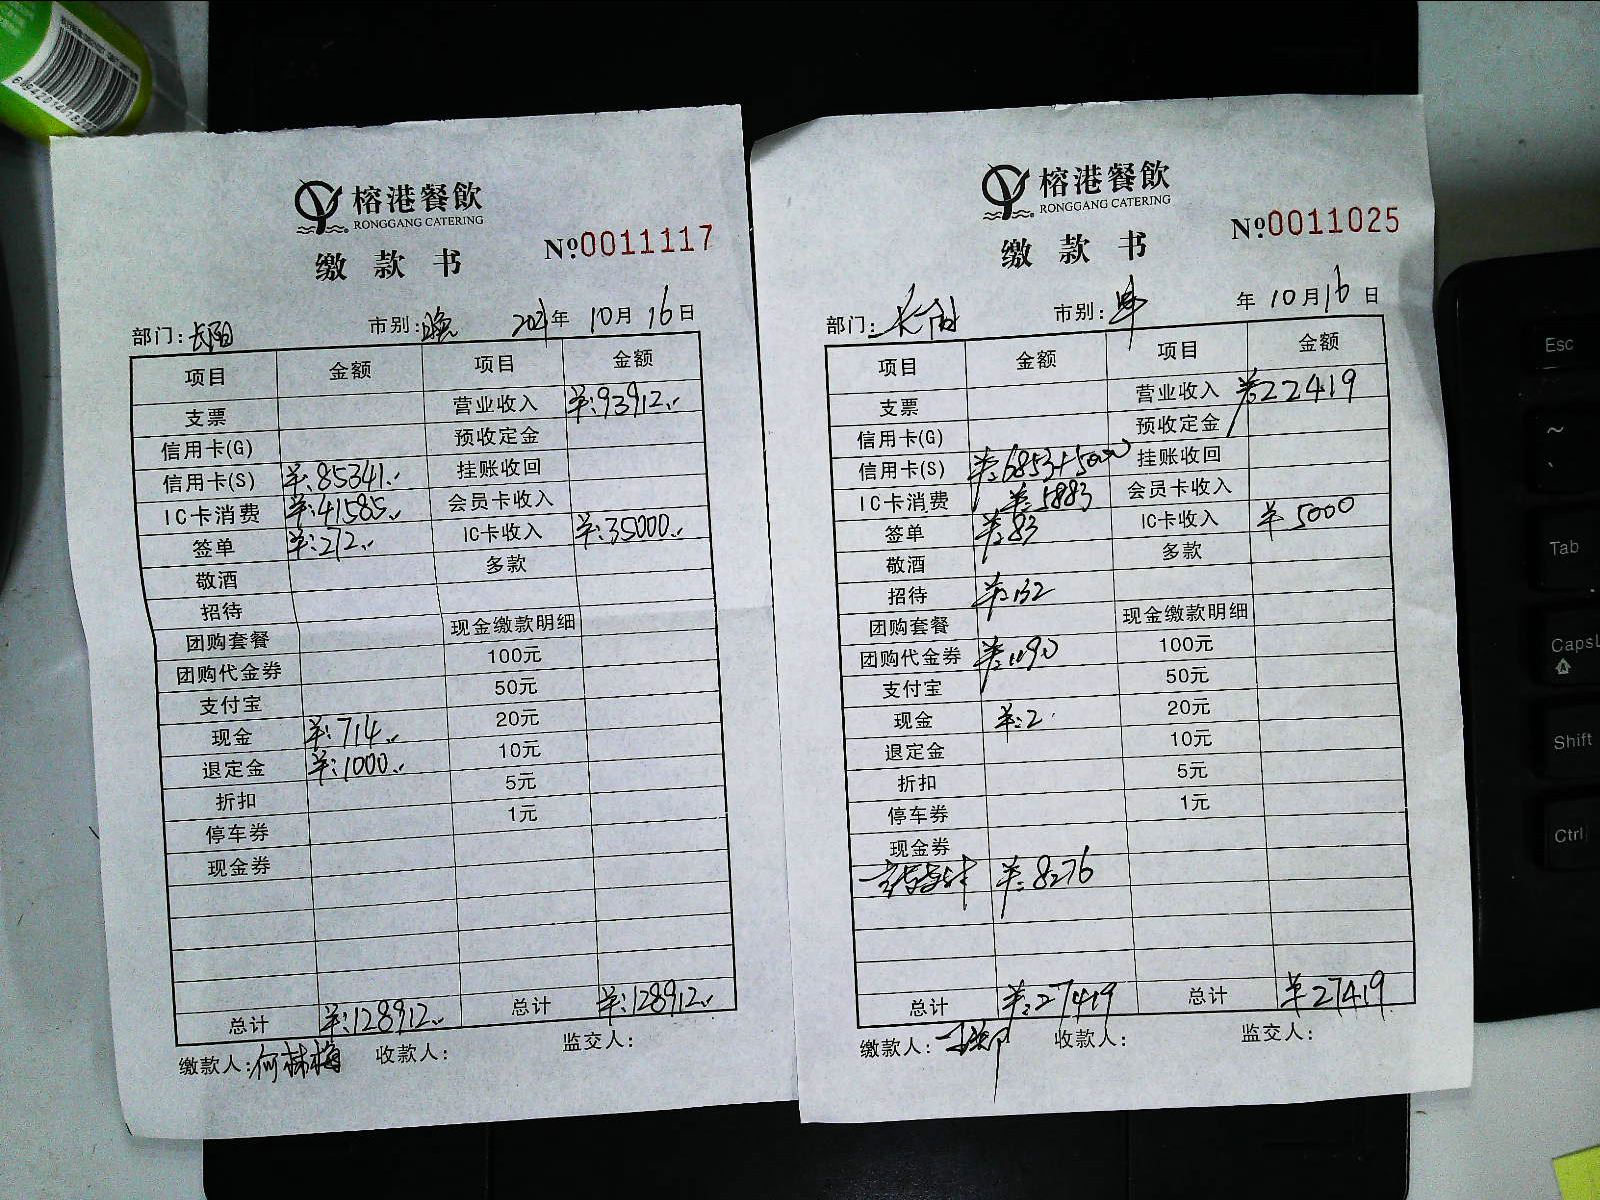 榕港餐飲
RONGGANG CATERING
缴款书
№0011117
部门:长阳 市别:晚 年10月16日
项目 金额 项目 金额
支票 营业收入 ¥:93912.
信用卡(G) 预收定金
信用卡(S) ¥:85341. 挂账收回
IC卡消费 ¥:41585. 会员卡收入
签单 ¥:212. IC卡收入 ¥:35000.
敬酒 多款
招待
团购套餐 现金缴款明细
团购代金券 100元
支付宝 50元
现金 ¥:714. 20元
退定金 ¥:1000. 10元
折扣 5元
停车券 1元
现金券
总计 ¥:128912. 总计 ¥:128912.
缴款人:何林梅 收款人: 监交人:
榕港餐飲
RONGGANG CATERING
缴款书
№0011025
部门: 市别: 年10月16日
项目 金额 项目 金额
支票 营业收入 ¥:22419
信用卡(G) 预收定金
信用卡(S) ¥:6853+5000 挂账收回
IC卡消费 ¥:5883 会员卡收入
签单 ¥:83 IC卡收入 ¥5000
敬酒 多款
招待 ¥:132
团购套餐 现金缴款明细
团购代金券 ¥:1190 100元
支付宝 50元
现金 ¥:2. 20元
退定金 10元
折扣 5元
停车券 1元
现金券
¥:8276
总计 ¥:27419 总计 ¥27419
缴款人: 收款人: 监交人:
Esc
~
Tab
Caps
Shift
Ctrl